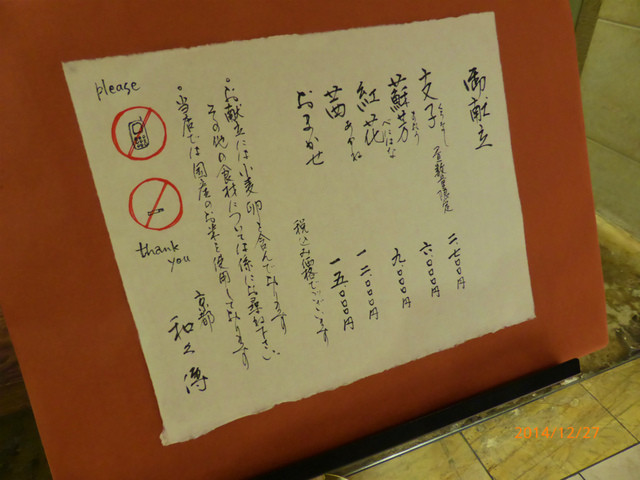 御献立
支子 くちなし 昼数量限定 二、七〇〇円
六、〇〇〇円
蘇芳 すおう 九、〇〇〇円
紅花 べにはな 一二、〇〇〇円
茜 あかね 一五、〇〇〇円
おまかせ
税込み価格でございます
・お献立には小麦、卵を含んでおります
その他の食材については係にお尋ね下さい。
・当店では国産のお米を使用しております
京都
和久傳
please
thank
you
2014/12/27